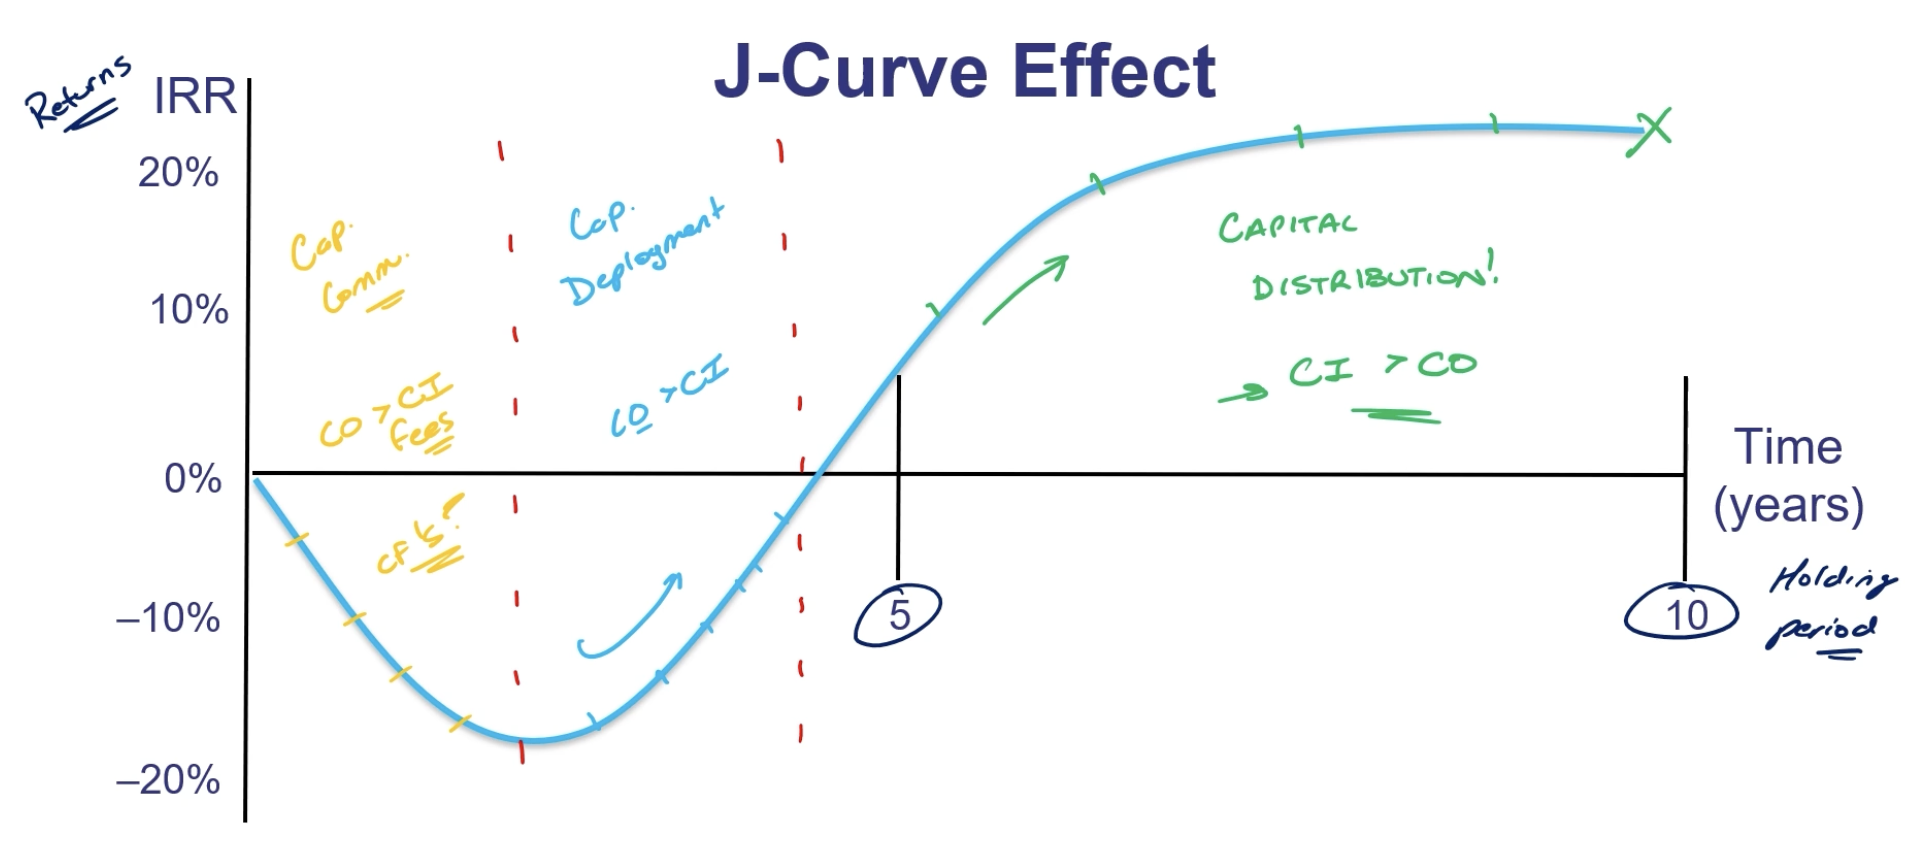 J-Curve Effect
Returns
IRR
20%
10%
0%
–10%
–20%
Cap.
Comm.
CO > CI
fees
CF's?
Cap.
Deployment
CO > CI
CAPITAL
DISTRIBUTION!
→ CI > CO
5
10
Time
(years)
Holding
period